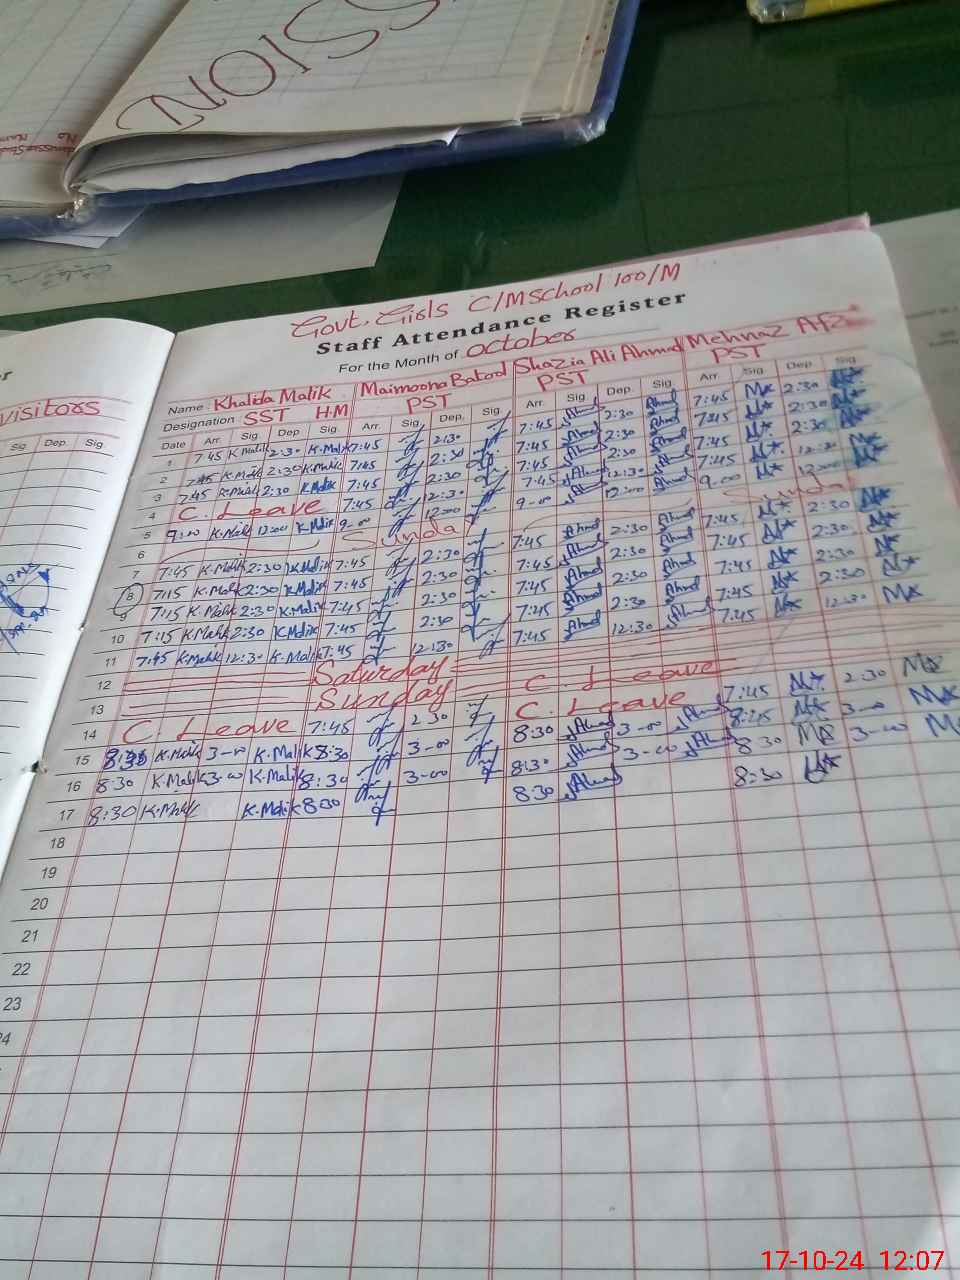 NOISS
Govt. Girls C/M School 100/M
Staff Attendance Register
For the Month of October
visitors
Name Khalida Malik Maimoona Batool Shazia Ali Ahmad Mehnaz
Designation SST H.M PST PST PST
Date Arr. Sig Dep Sig. Arr. Sig. Dep. Sig. Arr. Sig Dep. Sig. Arr. Sig Dep. Sig
Sig Dep. Sig
1 7:45 K.Malik 2:30 K.Malik 7:45 2:30 7:45 Ahmad 2:30 Ahmad 7:45 2:30
2 7:45 K.Malik 2:30 K.Malik 7:45 2:30 7:45 Ahmad 2:30 Ahmad 7:45 2:30
3 7:45 K.Malik 2:30 K.Malik 7:45 2:30 7:45 Ahmad 2:30 Ahmad 7:45 2:30
4 C. Leave 7:45 12:30 7:45 Ahmad 12:30 Ahmad 7:45 12:30
5 9:00 K.Malik 12:00 K.Malik 9-00 12:00 9-00 Ahmad 12:00 Ahmad 9:00 12:00
6 Sunday
7 7:45 K.Malik 2:30 K.Malik 7:45 2:30 7:45 Ahmad 2:30 Ahmad 7:45 2:30
8 7:15 K.Malik 2:30 K.Malik 7:45 2:30 7:45 Ahmad 2:30 Ahmad 7:45 2:30
9 7:15 K.Malik 2:30 K.Malik 7:45 2:30 7:45 Ahmad 2:30 Ahmad 7:45 2:30
10 7:15 K.Malik 2:30 K.Malik 7:45 2:30 7:45 Ahmad 2:30 Ahmad 7:45 2:30
11 7:45 K.Malik 12:30 K.Malik 7:45 12:30 7:45 Ahmad 12:30 Ahmad 7:45 12:30
12 Saturday
13 Sunday C. Leave
14 C. Leave 7:45 2:30 C. Leave 7:45 2:30
15 8:30 K.Malik 3-00 K.Malik 8:30 3-00 8:30 Ahmad 3-00 Ahmad 8:45 3-00
16 8:30 K.Malik 3-00 K.Malik 8:30 3-00 8:30 Ahmad 3-00 Ahmad 8:30 3-00
17 8:30 K.Malik K.Malik 8:30 8:30 Ahmad 8:30
18
19
20
21
22
23
24
17-10-24 12:07